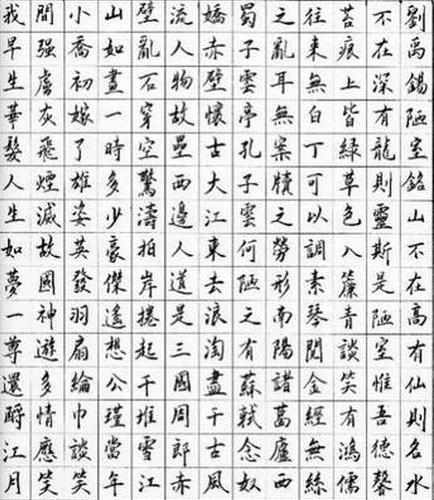 劉禹錫陋室銘山不在高有仙則名水
不在深有龍則靈斯是陋室惟吾德馨
苔痕上皆綠草色入簾青談笑有鴻儒
往来無白丁可以調素琴閱金經無絲
之亂耳無案牘之勞形南陽諸葛廬西
蜀子雲亭孔子雲何陋之有蘇軾念奴
嬌赤壁懷古大江東去浪淘盡千古風
流人物故壘西邊人道是三國周郎赤
壁亂石穿空驚濤拍岸捲起千堆雪江
山如畫一時多少豪傑遙想公瑾當年
小喬初嫁了雄姿英發羽扇綸巾談笑
間强虜灰飛煙滅故國神遊多情應笑
我早生華髮人生如夢一尊還酹江月